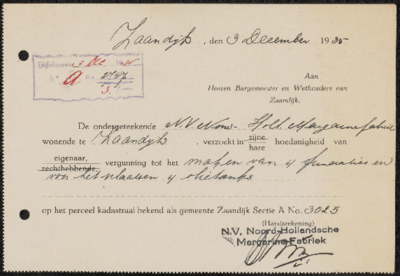 Zaandijk, den 3 December 1935
3 Dec
A
Aan
Heeren Burgemeester en Wethouders van
Zaandijk.
De ondergeteekende N.V. Noord-Holl. Margarinefabriek
wonende te Zaandijk, verzoekt in zijne hoedanigheid van
hare
eigenaar, vergunning tot het maken van 4 fundaties en
rechthebbende,
voor het plaatsen 4 olietanks
op het perceel kadastraal bekend als gemeente Zaandijk Sectie A No. 3025
(Handteekening)
N.V. Noord-Hollandsche
Margarine-Fabriek